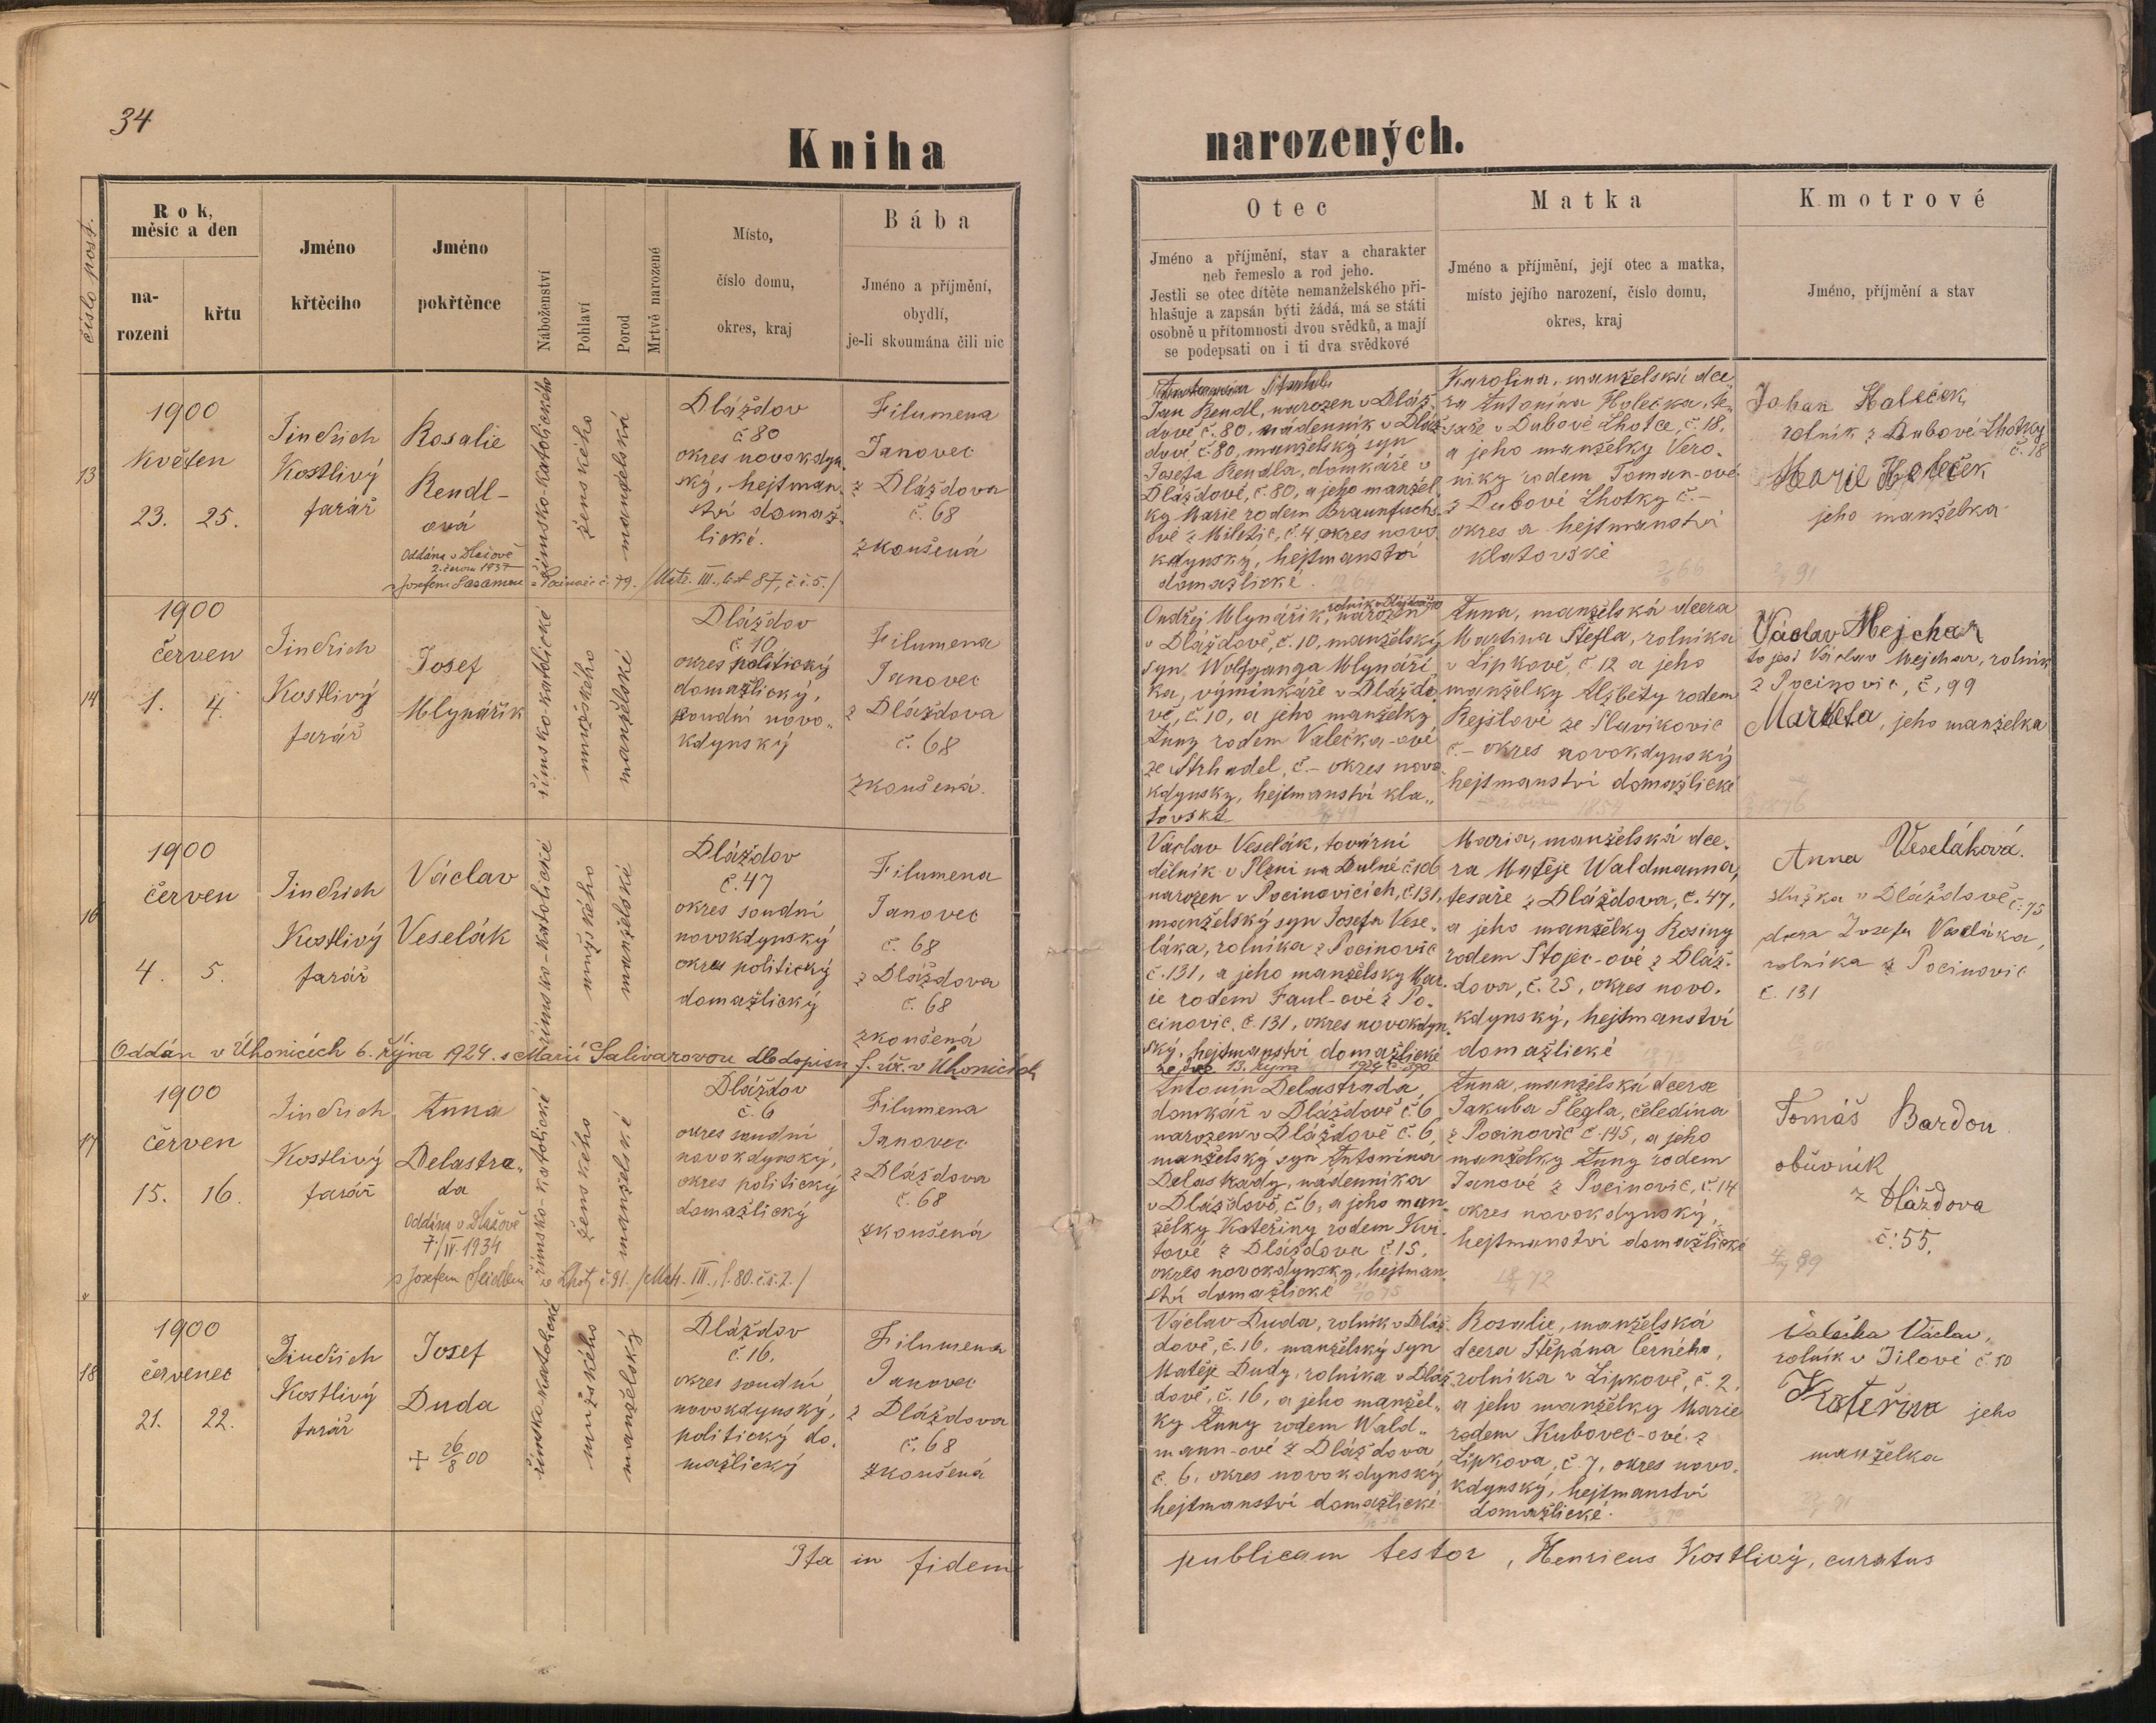 34
Kniha
narozených.
číslo post.
Rok,
měsíc a den
na-
rozeni
křtu
Jméno
křtěcího
Jméno
pokřtěnce
Náboženství
Pohlaví
Porod
Mrtvě narozené
Místo,
číslo domu,
okres, kraj
Bába
Jméno a příjmění,
obydlí,
je-li skoumána čili nic
Otec
Jméno a příjmění, stav a charakter
neb řemeslo a rod jeho.
Jestli se otec dítěte nemanželského při-
hlašuje a zapsán býti žádá, má se státi
osobně u přítomnosti dvou svědků, a mají
se podepsati on i ti dva svědkové
Matka
Jméno a příjmění, její otec a matka,
místo jejího narození, číslo domu,
okres, kraj
Kmotrové
Jméno, příjmění a stav
13
1900
Květen
23. 25.
Jindřich
Kostlivý
farář
Rosalie
Rendl-
ová
Oddána v Dlažově
2. června 1937
s Josefem z Pocinovic č. 79. /Matr. III., list 87, č. ř. 5./
římsko-katolického
ženského
manželská
Dláždov
č 80
okres novokdyn-
ský, hejtman-
ství domaž-
lické.
Filumena
Janovec
z Dláždova
č. 68
zkoušená
Jan Rendl, narozen v Dláž-
dově č. 80, nádenník v Dláž-
dově č. 80, manželský syn
Josefa Rendla, domkáře v
Dláždově, č. 80, a jeho manžel-
ky Marie rodem Braunfuchs-
ové z Miletic, č. 4, okres novo
kdynský, hejtmanství
domažlické.
Karolina, manželská dce-
ra Antonína Holečka, te-
saře v Dubové Lhotce, č. 18,
a jeho manželky Vero-
niky rodem Toman-ové
z Dubové Lhotky č. -
okres a hejtmanství
klatovské
Johan Haleček
rolník z Dubové Lhotky
č. 18
Marie Haleček
jeho manželka
14
1900
červen
1. 4.
Jindřich
Kostlivý
farář
Josef
Mlynářík
římsko-katolické
mužského
manželské
Dláždov
č. 10
okres politický
domažlický,
soudní novo-
kdynský
Filumena
Janovec
z Dláždova
č. 68
zkoušená.
Ondřej Mlynářík, narozen
v Dláždově, č. 10, manželský
syn Wolfganga Mlynáří-
ka, výminkáře v Dláždo-
vě, č. 10, a jeho manželky
Anny rodem Valečka-ové
ze Strhadel, č. - okres novo
kdynský, hejtmanství kla-
tovské
Anna, manželská dcera
Martina Štefla, rolníka
v Lipkově, č. 12 a jeho
manželky Alžběty rodem
Rejšlové ze Slavikovic
č. - okres novokdynský
hejtmanství domažlické
Václav Mejchar
to jest Václav Mejchar, rolník
z Pocinovic, č, 99
Markéta, jeho manželka
16
1900
červen
4. 5.
Jindřich
Kostlivý
farář
Václav
Veselák
římsko-katolické
mužského
manželské
Dláždov
č. 47
okres soudní
novokdynský
okres politický
domažlický
Filumena
Janovec
č. 68
z Dláždova
č. 68
zkoušená
Oddán v Úhonicích 6. října 1924. s Marií Salivarovou dle dopisu f. úř. v Úhonicích
ze dne 13. října 1924 č. 390
Václav Veselák, tovární
dělník v Plzni na Dulně č. 106
narozen v Pocinovicích, č. 131,
manželský syn Josefa Vese-
láka, rolníka z Pocinovic
č. 131, a jeho manželky Mar-
ie rodem Faul-ové z Po-
cinovic, č. 131, okres novokdyn-
ský, hejtmanství domažlické
Maria, manželská dce-
ra Matěje Waldmanna,
tesaře z Dláždova, č. 47,
a jeho manželky Rosiny
rodem Stojec-ové z Dláž-
dova, č. 25, okres novo-
kdynský, hejtmanství
domažlické
Anna Veseláková.
služka v Dláždově č. 75
dcera Josefa Veseláka,
rolníka z Pocinovic
č. 131
17
1900
červen
15. 16.
Jindřich
Kostlivý
farář
Anna
Delastra-
da
Oddána v Dlažově
7./IV. 1934
s Josefem Seidlem ze Lhoty č. 91. /Matr. III., l. 80. č. ř. 2./
římsko-katolické
ženského
manželské
Dláždov
č. 6
okres soudní
novokdynský,
okres politický
domažlický
Filumena
Janovec
z Dláždova
č. 68
zkoušená
Antonín Delastrada,
domkář v Dláždově č. 6,
narozen v Dláždově č. 6,
manželský syn Antonína
Delastrady, nádenníka
v Dláždově, č. 6, a jeho man-
želky Kateřiny rodem Kvi-
tové z Dláždova č. 15,
okres novokdynský, hejtman-
ství domažlické
Anna, manželská dcera
Jakuba Šlegla, čeledína
z Pocinovic č. 145, a jeho
manželky Anny rodem
Janové z Pocinovic, č. 14
okres novokdynský,
hejtmanství domažlické
Tomáš Bardon
obuvník
z Dláždova
č. 55.
18
1900
červenec
21. 22.
Jindřich
Kostlivý
farář
Josef
Duda
+ 26/8 00
římsko-katolické
mužského
manželský
Dláždov
č. 16.
okres soudní
novokdynský,
politický do-
mažlický
Filumena
Janovec
z Dláždova
č. 68
zkoušená
Václav Duda, rolník v Dláž-
dově, č. 16, manželský syn
Matěje Dudy, rolníka v Dláž-
dově, č. 16, a jeho manžel-
ky Anny rodem Wald-
mann-ové z Dláždova
č. 6, okres novokdynský
hejtmanství domažlické
Rosalie, manželská
dcera Štěpána Černého,
rolníka v Lipkově, č. 2,
a jeho manželky Marie
rodem Kubovec-ové z
Lipkova, č. 7, okres novo-
kdynský, hejtmanství
domažlické.
Valečka Václav,
rolník v Jilové č 10
Kateřina jeho
manželka
Ita in fidem publicam testor, Henricus Kostlivý, curatus